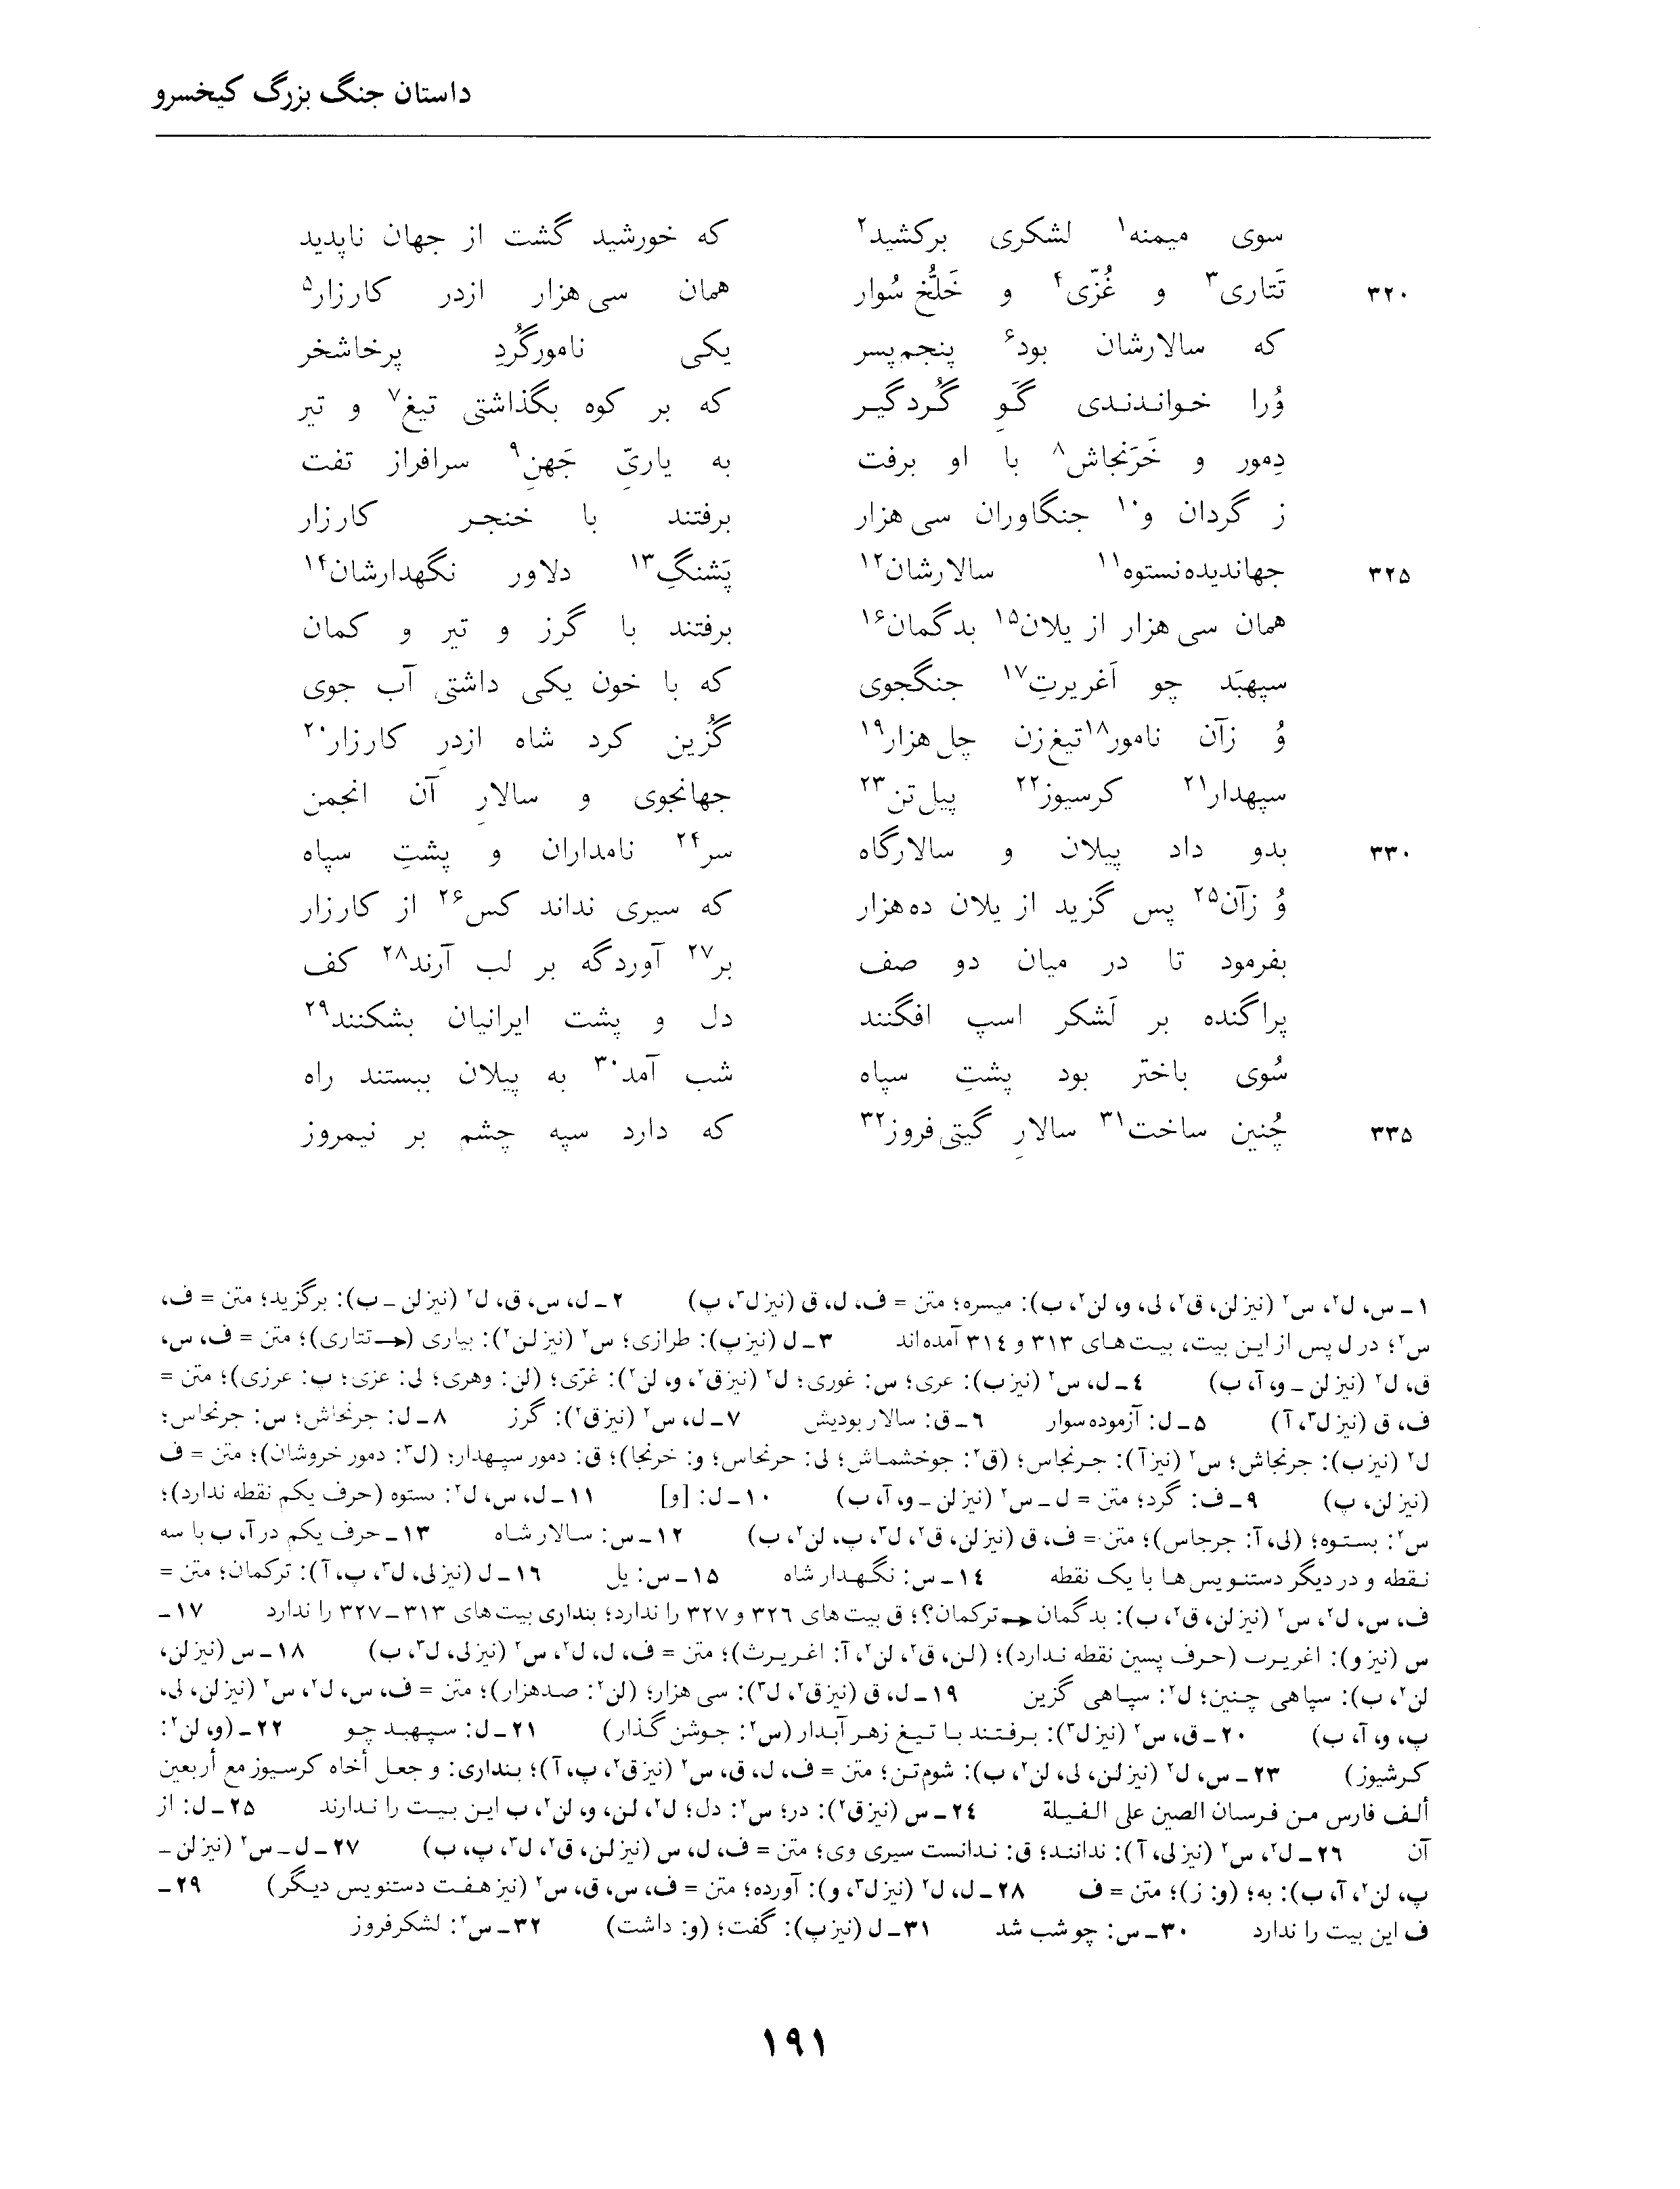 داستان جنگ بزرگ کیخسرو
سوی میمنه۱ لشکری برکشید۲ که خورشید گشت از جهان ناپدید
۳۲۰ تَتاری۳ و غُزّی۴ و خَلُّخ سُوار همان سی هزار ازدر کارزار۵
که سالارشان بود۶ پنجم پسر یکی نامورگُردِ پرخاشخر
وُرا خواندندی گَوِ گُردگیر که بر کوه بگذاشتی تیغ۷ و تیر
دِمور و خَرَنجاش۸ با او برفت به یاریِّ جَهنِ۹ سرافراز تفت
ز گردان و۱۰ جنگاوران سی هزار برفتند با خنجر کارزار
۳۲۵ جهاندیده نستوه۱۱ سالارشان۱۲ پَشنگِ۱۳ دلاور نگهدارشان۱۴
همان سی هزار از یلان۱۵ بدگمان۱۶ برفتند با گرز و تیر و کمان
سپهبَد چو اَغریرتِ۱۷ جنگجوی که با خون یکی داشتی آب جوی
وُ زآن نامور۱۸ تیغ زن چل هزار۱۹ گُزین کرد شاه ازدرِ کارزار۲۰
سپهدار۲۱ کرسیوز۲۲ پیل تن۲۳ جهانجوی و سالارِ آن انجمن
۳۳۰ بدو داد پیلان و سالارگاه سر۲۴ نامداران و پشتِ سپاه
وُ زآن۲۵ پس گزید از یلان ده هزار که سیری نداند کس۲۶ از کارزار
بفرمود تا در میان دو صف بر۲۷ آوردگه بر لب آرند۲۸ کف
پراگنده بر لَشکر اسپ افگنند دل و پشت ایرانیان بشکنند۲۹
سُوی باختر بود پشتِ سپاه شب آمد۳۰ به پیلان ببستند راه
۳۳۵ چُنین ساخت۳۱ سالارِ گیتی فروز۳۲ که دارد سپه چشم بر نیمروز
۱ـ س، ل۲، س۲ (نیز لن، ق۲، لی، و، لن۲، ب): میسره؛ متن = ف، ل، ق (نیز ل۳، پ) ۲ـ ل، س، ق، ل۲ (نیز لن ـ ب): برگزید؛ متن = ف،
س۲؛ در ل پس از این بیت، بیت‌های ۳۱۳ و ۳۱۴ آمده‌اند ۳ـ ل (نیز پ): طرازی؛ س۲ (نیز لن۲): بیاری (←تتاری)؛ متن = ف، س،
ق، ل۲ (نیز لن ـ و، آ، ب) ۴ـ ل، س۲ (نیز ب): عری؛ س: غوری؛ ل۲ (نیز ق۲، و، لن۲): غزی؛ (لن: وهری؛ لی: عزی؛ پ: عرزی)؛ متن =
ف، ق (نیز ل۳، آ) ۵ـ ل: آزموده سوار ۶ـ ق: سالار بودیش ۷ـ ل، س۲ (نیز ق۲): گرز ۸ـ ل: جرنخاش؛ س: جرنحاس؛
ل۲ (نیز ب): جرنجاش؛ س۲ (نیز آ): جرنجاس؛ (ق۲: جوخشماش؛ لی: حرنحاس؛ و: خرنجا)؛ ق: دمور سپهدار؛ (ل۳: دمور خروشان)؛ متن = ف
(نیز لن، پ) ۹ـ ف: گرد؛ متن = ل ـ س۲ (نیز لن ـ و، آ، ب) ۱۰ـ ل: [و] ۱۱ـ ل، س، ل۲: ستوه (حرف یکم نقطه ندارد)؛
س۲: بستوه؛ (لی، آ: جرجاس)؛ متن = ف، ق (نیز لن، ق۲، ل۳، پ، لن۲، ب) ۱۲ـ س: سالار شاه ۱۳ـ حرف یکم در آ، ب با سه
نقطه و در دیگر دستنویس‌ها با یک نقطه ۱۴ـ س: نگهدار شاه ۱۵ـ س: یل ۱۶ـ ل (نیز لی، ل۳، پ، آ): ترکمان؛ متن =
ف، س، ل۲، س۲ (نیز لن، ق۲، ب): بدگمان←ترکمان؟؛ ق بیت‌های ۳۲۶ و ۳۲۷ را ندارد؛ بنداری بیت‌های ۳۱۳ـ۳۲۷ را ندارد ۱۷ـ
س (نیز و): اغریرب (حرف پسین نقطه ندارد)؛ (لن، ق۲، لن۲، آ: اغریرث)؛ متن = ف، ل، ل۲، س۲ (نیز لی، ل۳، ب) ۱۸ـ س (نیز لن،
لن۲، ب): سپاهی چنین؛ ل۲: سپاهی گزین ۱۹ـ ل، ق (نیز ق۲، ل۳): سی هزار؛ (لن۲: صدهزار)؛ متن = ف، س، ل۲، س۲ (نیز لن، لی،
پ، و، آ، ب) ۲۰ـ ق، س۲ (نیز ل۳): برفتند با تیغ زهر آبدار (س۲: جوشن گذار) ۲۱ـ ل: سپهبد چو ۲۲ـ (و، لن۲:
کرشیوز) ۲۳ـ س، ل۲ (نیز لن، لی، لن۲، ب): شوم تن؛ متن = ف، ل، ق، س۲ (نیز ق۲، پ، آ)؛ بنداری: و جعل أخاه کرسیوز مع أربعین
ألف فارس من فرسان الصین علی الفیلة ۲۴ـ س (نیز ق۲): در؛ س۲: دل؛ ل۲، لن، و، لن۲، ب این بیت را ندارند ۲۵ـ ل: از
آن ۲۶ـ ل۲، س۲ (نیز لی، آ): ندانند؛ ق: ندانست سیری وی؛ متن = ف، ل، س (نیز لن، ق۲، ل۳، پ، ب) ۲۷ـ ل ـ س۲ (نیز لن ـ
پ، لن۲، آ، ب): به؛ (و: ز)؛ متن = ف ۲۸ـ ل، ل۲ (نیز ل۳، و): آورده؛ متن = ف، س، ق، س۲ (نیز هفت دستنویس دیگر) ۲۹ـ
ف این بیت را ندارد ۳۰ـ س: چو شب شد ۳۱ـ ل (نیز پ): گفت؛ (و: داشت) ۳۲ـ س۲: لشکرفروز
۱۹۱